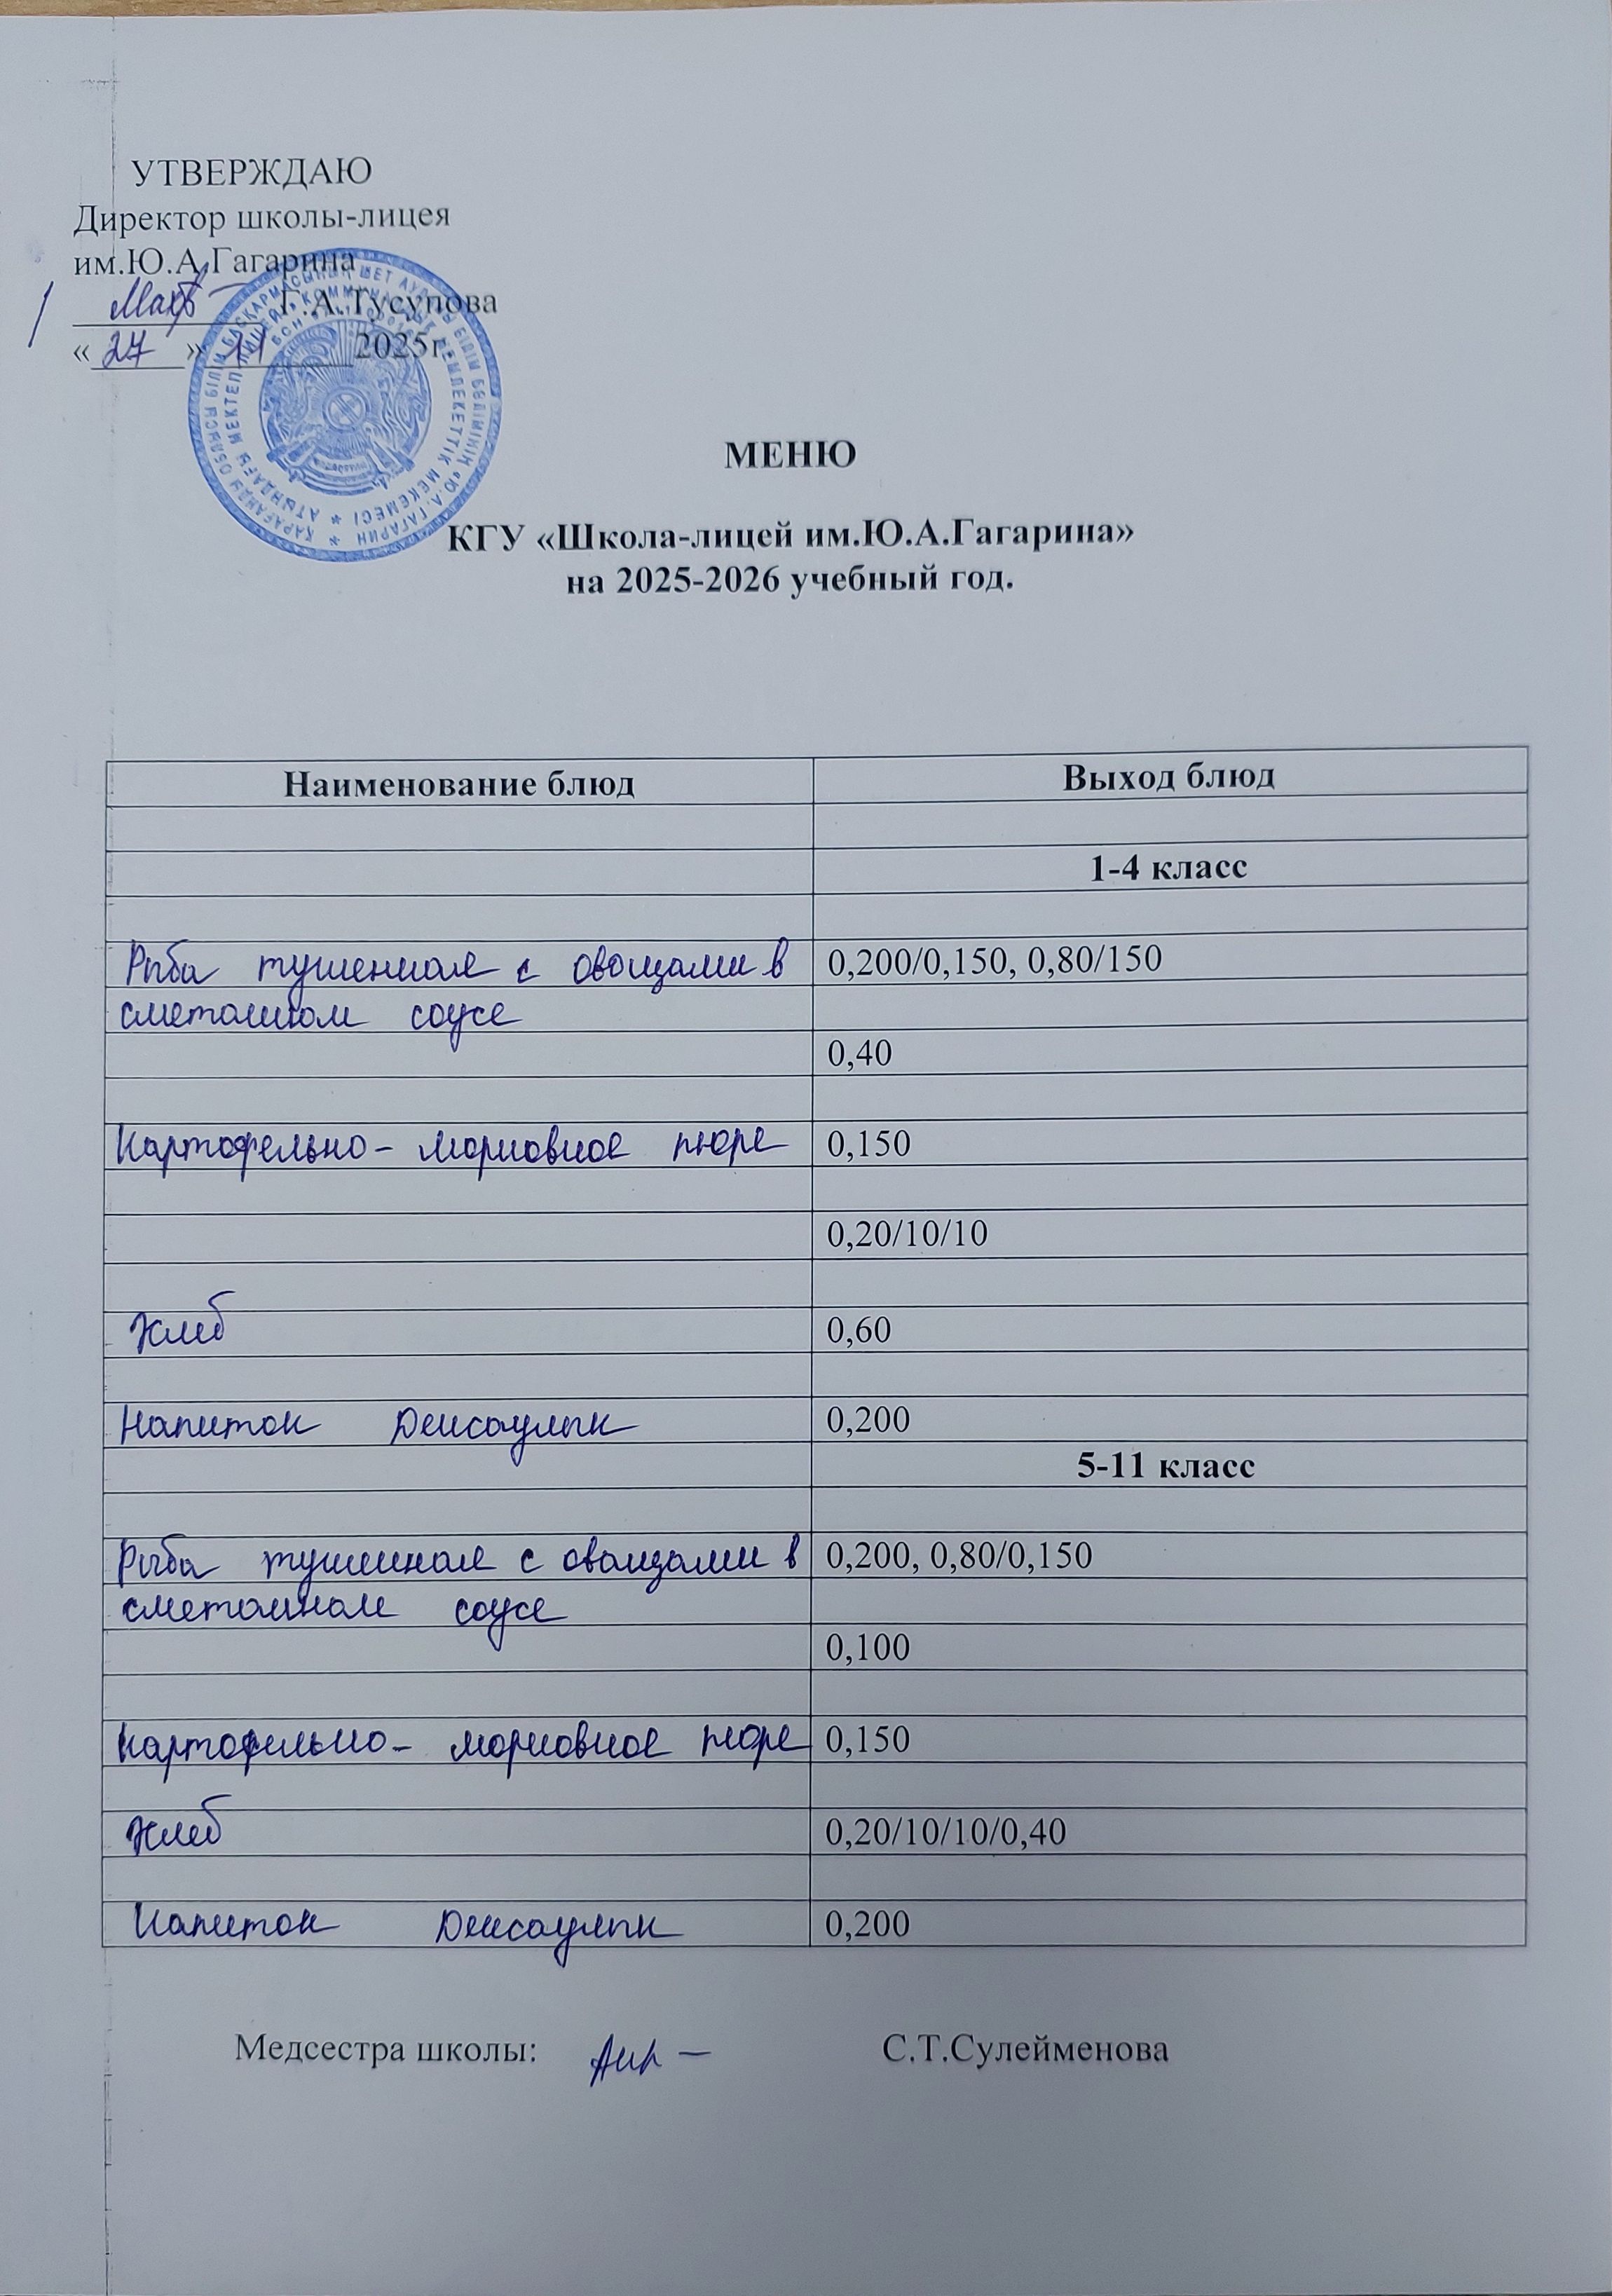 УТВЕРЖДАЮ
Директор школы-лицея
им.Ю.А.Гагарина
Г.А.Тусупова
«27» 11 2025г.
МЕНЮ
КГУ «Школа-лицей им.Ю.А.Гагарина»
на 2025-2026 учебный год.
Наименование блюд Выход блюд
1-4 класс
Рыба тушенная с овощами в 0,200/0,150, 0,80/150
сметанном соусе
0,40
Картофельно- морковное пюре 0,150
0,20/10/10
Хлеб 0,60
Напиток Денсаулык 0,200
5-11 класс
Рыба тушенная с овощами в 0,200, 0,80/0,150
сметанном соусе
0,100
Картофельно- морковное пюре 0,150
Хлеб 0,20/10/10/0,40
Напиток Денсаулык 0,200
Медсестра школы: С.Т.Сулейменова